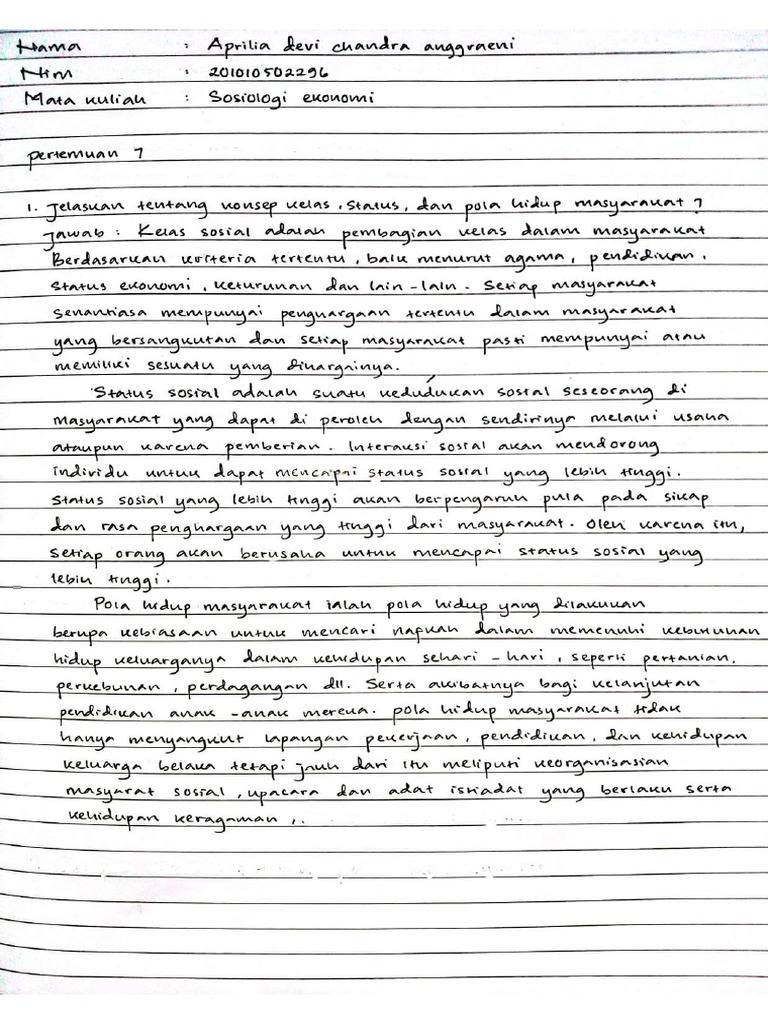 Nama : Aprilia devi chandra anggraeni
Nim : 201010502296
Mata kuliah : Sosiologi ekonomi
pertemuan 7
1. Jelaskan tentang konsep kelas, status, dan pola hidup masyarakat ?
Jawab : Kelas sosial adalah pembagian kelas dalam masyarakat
Berdasarkan kriteria tertentu, baik menurut agama, pendidikan.
Status ekonomi, keturunan dan lain-lain. Setiap masyarakat
senantiasa mempunyai penghargaan tertentu dalam masyarakat
yang bersangkutan dan setiap masyarakat pasti mempunyai atau
memiliki sesuatu yang dihargainya.
Status sosial adalah suatu kedudukan sosial seseorang di
masyarakat yang dapat di peroleh dengan sendirinya melalui usaha
ataupun karena pemberian. Interaksi sosial akan mendorong
individu untuk dapat mencapai status sosial yang lebih tinggi.
Status sosial yang lebih tinggi akan berpengaruh pula pada sikap
dan rasa penghargaan yang tinggi dari masyarakat. Oleh karena itu,
setiap orang akan berusaha untuk mencapai status sosial yang
lebih tinggi.
Pola hidup masyarakat ialah pola hidup yang dilakukan
berupa kebiasaan untuk mencari nafkah dalam memenuhi kebutuhan
hidup keluarganya dalam kehidupan sehari-hari, seperti pertanian,
perkebunan, perdagangan dll. Serta akibatnya bagi kelanjutan
pendidikan anak-anak mereka. pola hidup masyarakat tidak
hanya menyangkut lapangan pekerjaan, pendidikan, dan kehidupan
keluarga belaka tetapi jauh dari itu meliputi keorganisasian
masyarat sosial, upacara dan adat istiadat yang berlaku serta
kehidupan keragaman,.